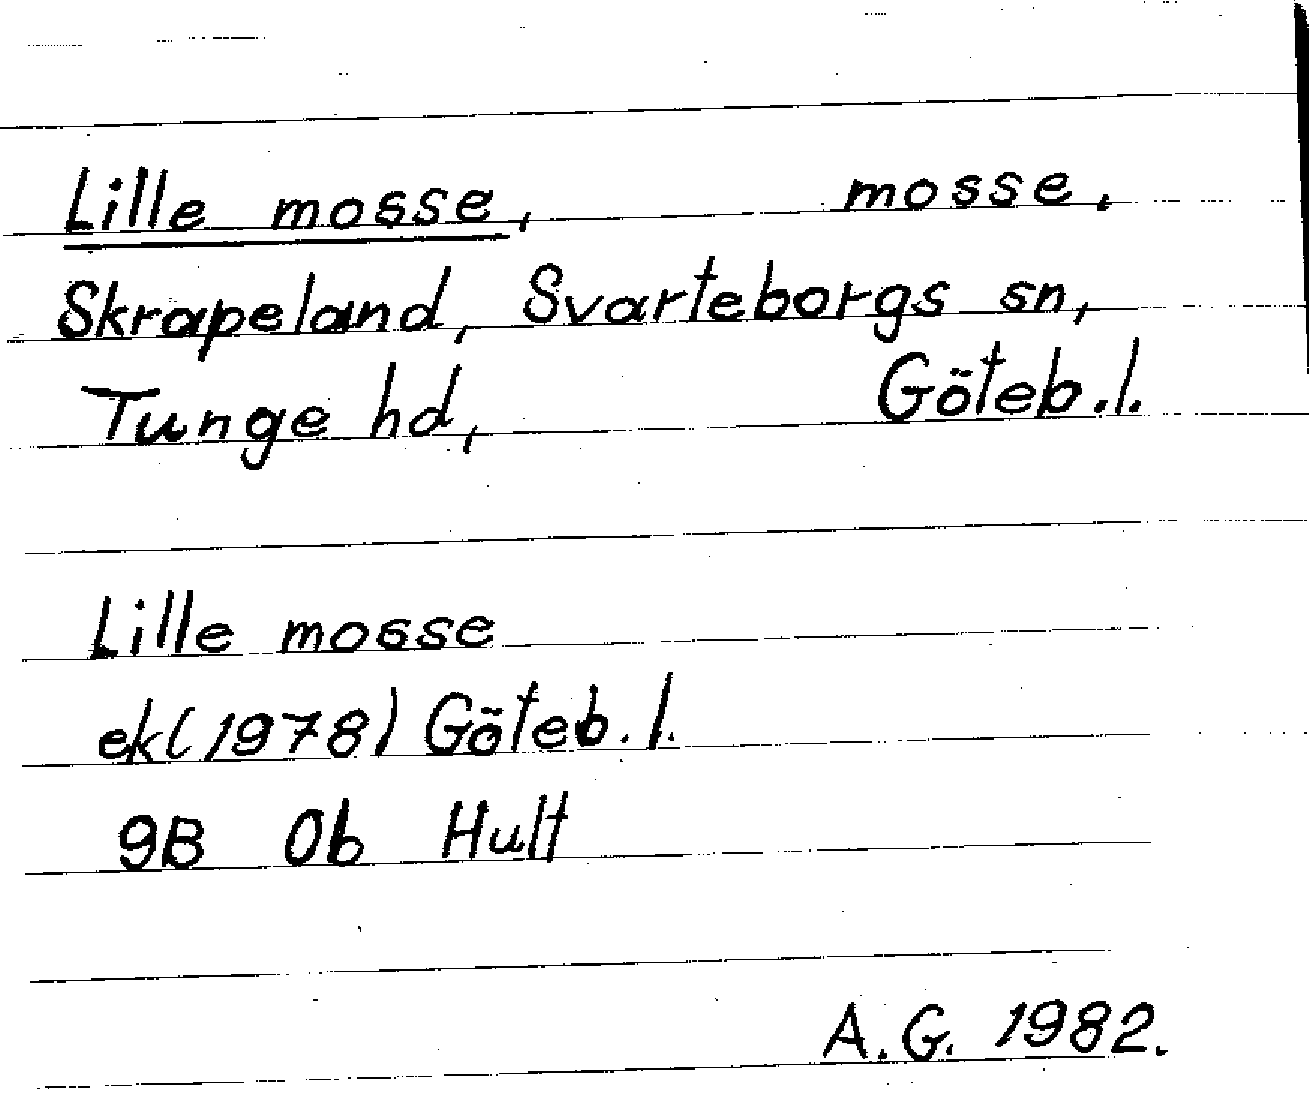 Lille mosse, mosse,
Skrapeland, Svarteborgs sn,
Tunge hd, Göteb.l.
Lille mosse
ek(1978) Göteb.l.
9B 0b Hult
A.G. 1982.